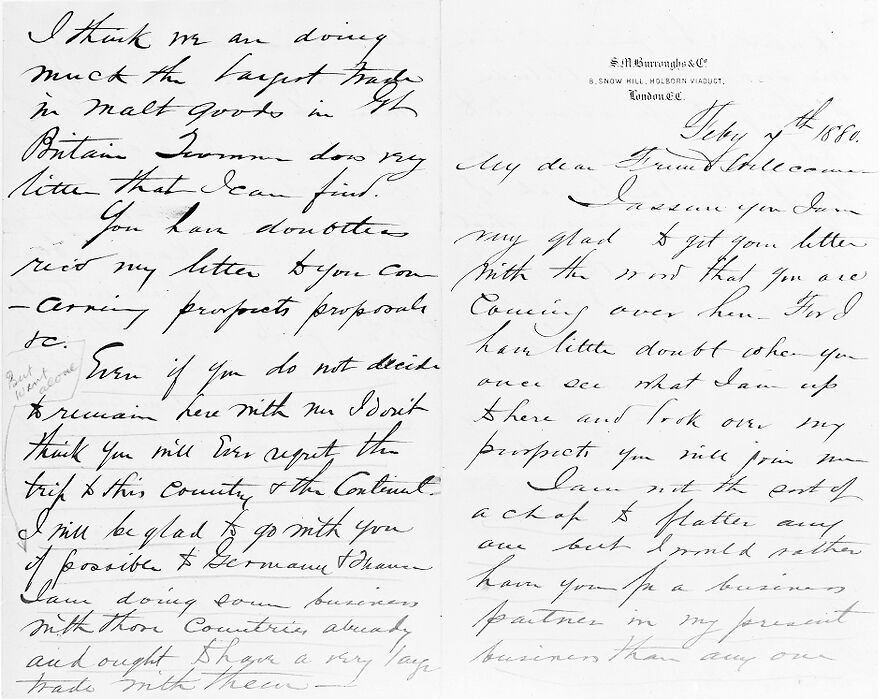 S.M.Burroughs & Co.
8, SNOW HILL, HOLBORN VIADUCT,
London E.C.
Feby 7th 1880.
My dear Friend Wellcome
I assure you I am
very glad to get your letter
with the word that you are
Coming over here - For I
have little doubt when you
once see what I am up
to here and look over my
prospects you will join me
I am not the sort of
a chap to flatter any
one but I would rather
have you for a business
partner in my present
business than any one
I think we are doing
much the largest trade
in malt goods in Gt
Britain Trommer does very
little that I can find.
You have doubtless
recd my letter to you con
-cerning prospects proposals
&c.
Even if you do not decide
to remain here with me I don't
think you will Ever regret the
trip to this country & the Continent.
I will be glad to go with you
if possible to Germany & France
I am doing some business
with those Countries already
and ought to have a very large
trade with them -
But
went
alone